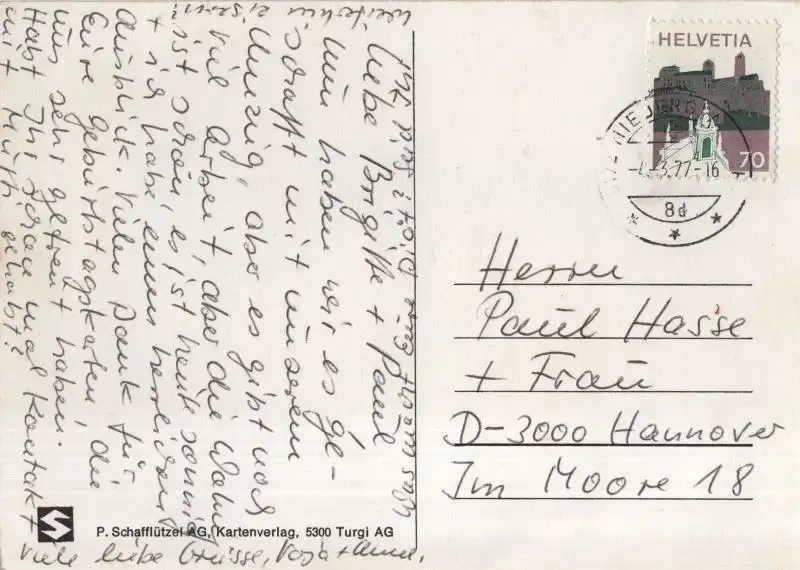 Liebe Brigitte + Paul
Nun haben wir es ge-
schafft mit unserem
Umzug, aber es gibt noch
viel Arbeit, aber die Wohnung
ist schön, es ist heute sonnig
+ ich habe einen herrlichen
Ausblick. Vielen Dank für
Eure Geburtstagskarten, die
uns sehr gefreut haben.
Habt Ihr schon mal Kontakt
mit gehabt?
Was macht Eure Diät? Seid Ihr
weiterhin eisern?
viele liebe Grüsse,
P. Schafflützel AG, Kartenverlag, 5300 Turgi AG
HELVETIA
70
-4.-3.77-16
8d
Herrn
Paul Hasse
+ Frau
D-3000 Hannover
Im Moore 18